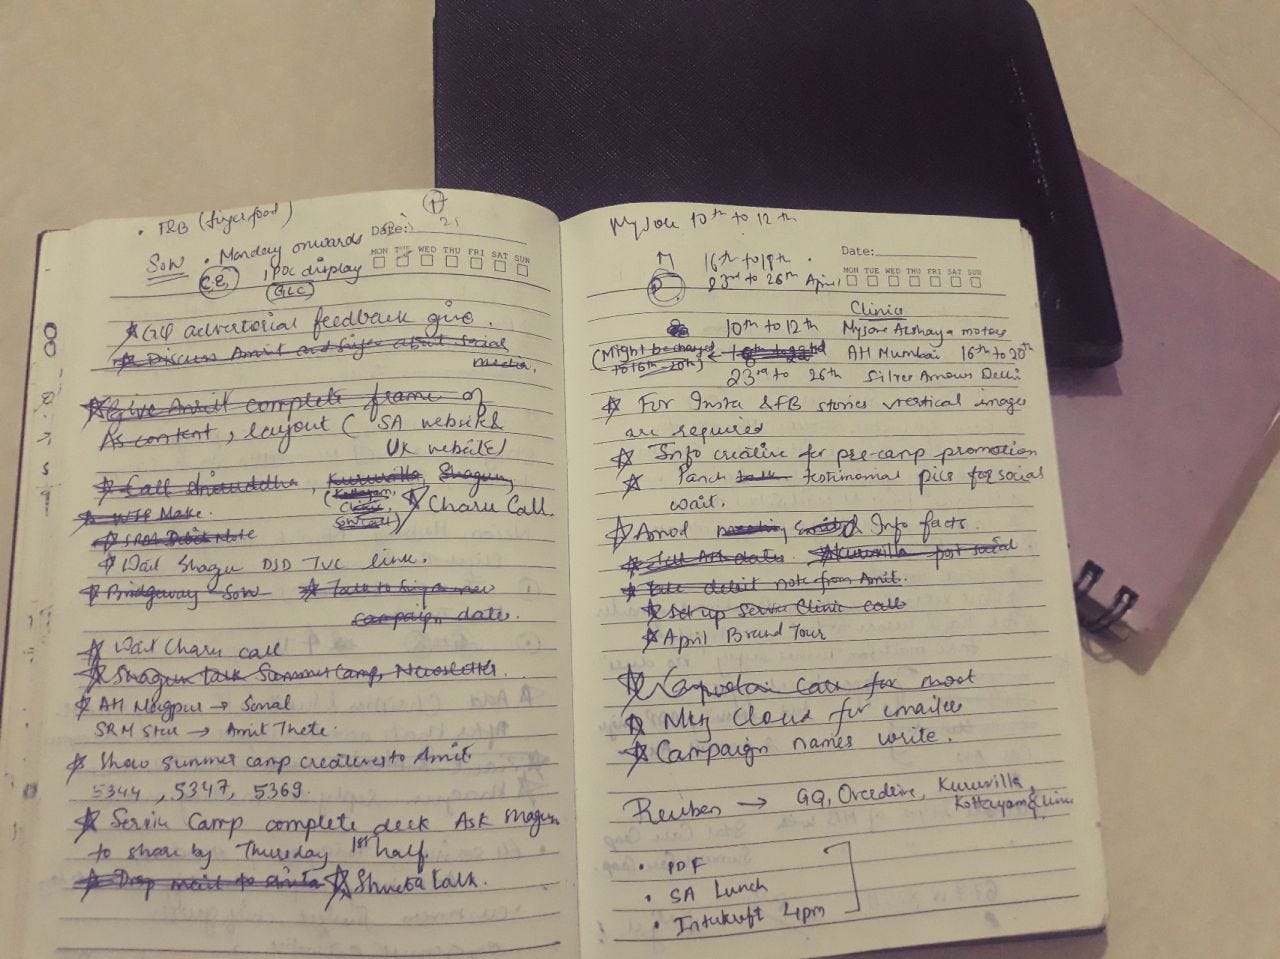 • F&B (finger food)
17
21
Date:
SOW • Monday onwards
MON TUE WED THU FRI SAT SUN
C.E, POC display
GLC
GQ advertorial feedback give.
Discuss Amrit and about social
media.
Give Amrit complete frame of
As content, layout ( SA website &
UK website)
Call Aniruddha, Kuruvilla, Shagun,
(Kottayam,
WIP Make. Charu Call
SOW call)
SRM Debit Note
Wait Shagun DSD TVC link.
Bridgeway SOW Talk to
campaign dates.
Wait Charu call
Shagun talk Summer Camp, Newsletter.
AH Nagpur → Sonal
SRM → Amit Thete.
Show summer camp creatives to Amrit
5344, 5347, 5369.
Service Camp complete deck Ask Shagun
to share by Thursday 1st half.
Drop mail to Shweta talk.
Mysore 10th to 12th
M 16th to 19th
23rd to 26th April
Date:
MON TUE WED THU FRI SAT SUN
Clinics
10th to 12th Mysore Akshaya motors
(Might be changed ← AH Mumbai 16th to 20th
to 16th - 20th)
23rd to 26th Silver Arrows Delhi
For Insta & FB stories vertical images
are required
Info creative for pre-camp promotion
talk testimonial pics for social
wait.
Amod Info facts.
Tell AH dates Kuruvilla post social
Take debit note from Amit.
Set up Service Clinic call
April Brand Tour
Car for shoot
Mktg Cloud for emailer
Campaign names write.
Reuben → GQ, Overdrive, Kuruvilla,
Kottayam Clinic
• PDF
• SA Lunch
• 4pm